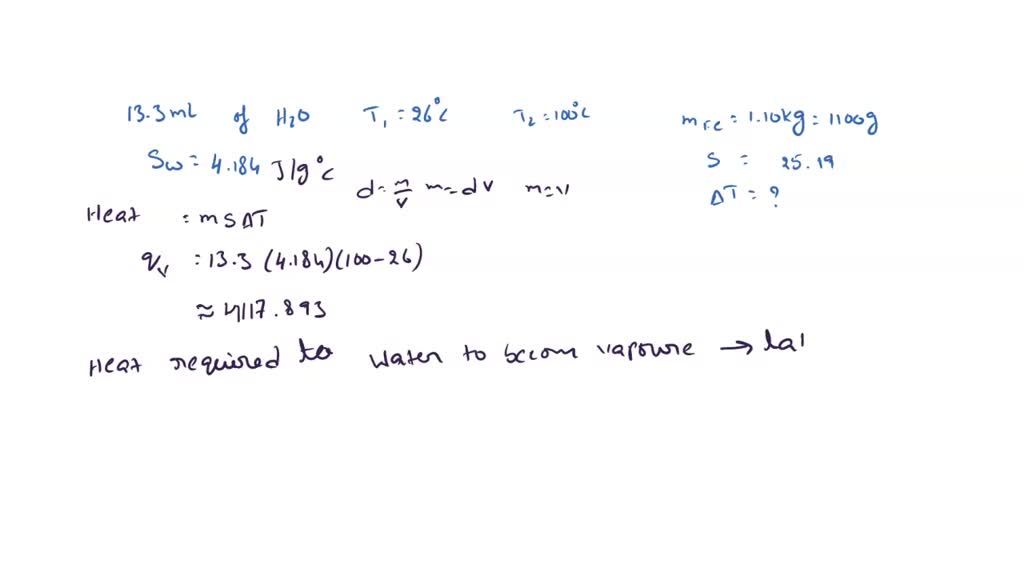 13.3 mL of H2O T1 = 26°C T2 = 100°C mFe = 1.10kg = 1100g
Sw = 4.184 J/g°C S = 25.19
d = m/v m = dv m = v ΔT = ?
Heat = m S ΔT
qv = 13.3 (4.184)(100-26)
≈ 4117.893
Heat required to water to becom vapoure → lat